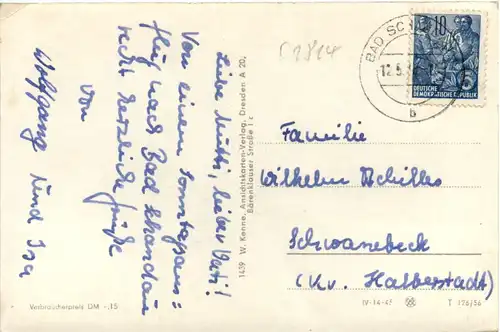 Liebe Mutti, lieber Vati!
Von einem Sonntagaus=
flug nach Bad Schandau
recht herzliche Grüße
von
Wolfgang und Isa
1439 W. Kenne, Ansichtskarten-Verlag, Dresden A 20,
Bärenklauser Straße 1 c
Verbraucherpreis DM -.15
BAD SC
12.5.
b
10
DEUTSCHE
DEMOKRATISCHE REPUBLIK
Familie
Wilhelm Achilles
Schwanebeck
(Kr. Halberstadt)
IV-14-45
T 176/56